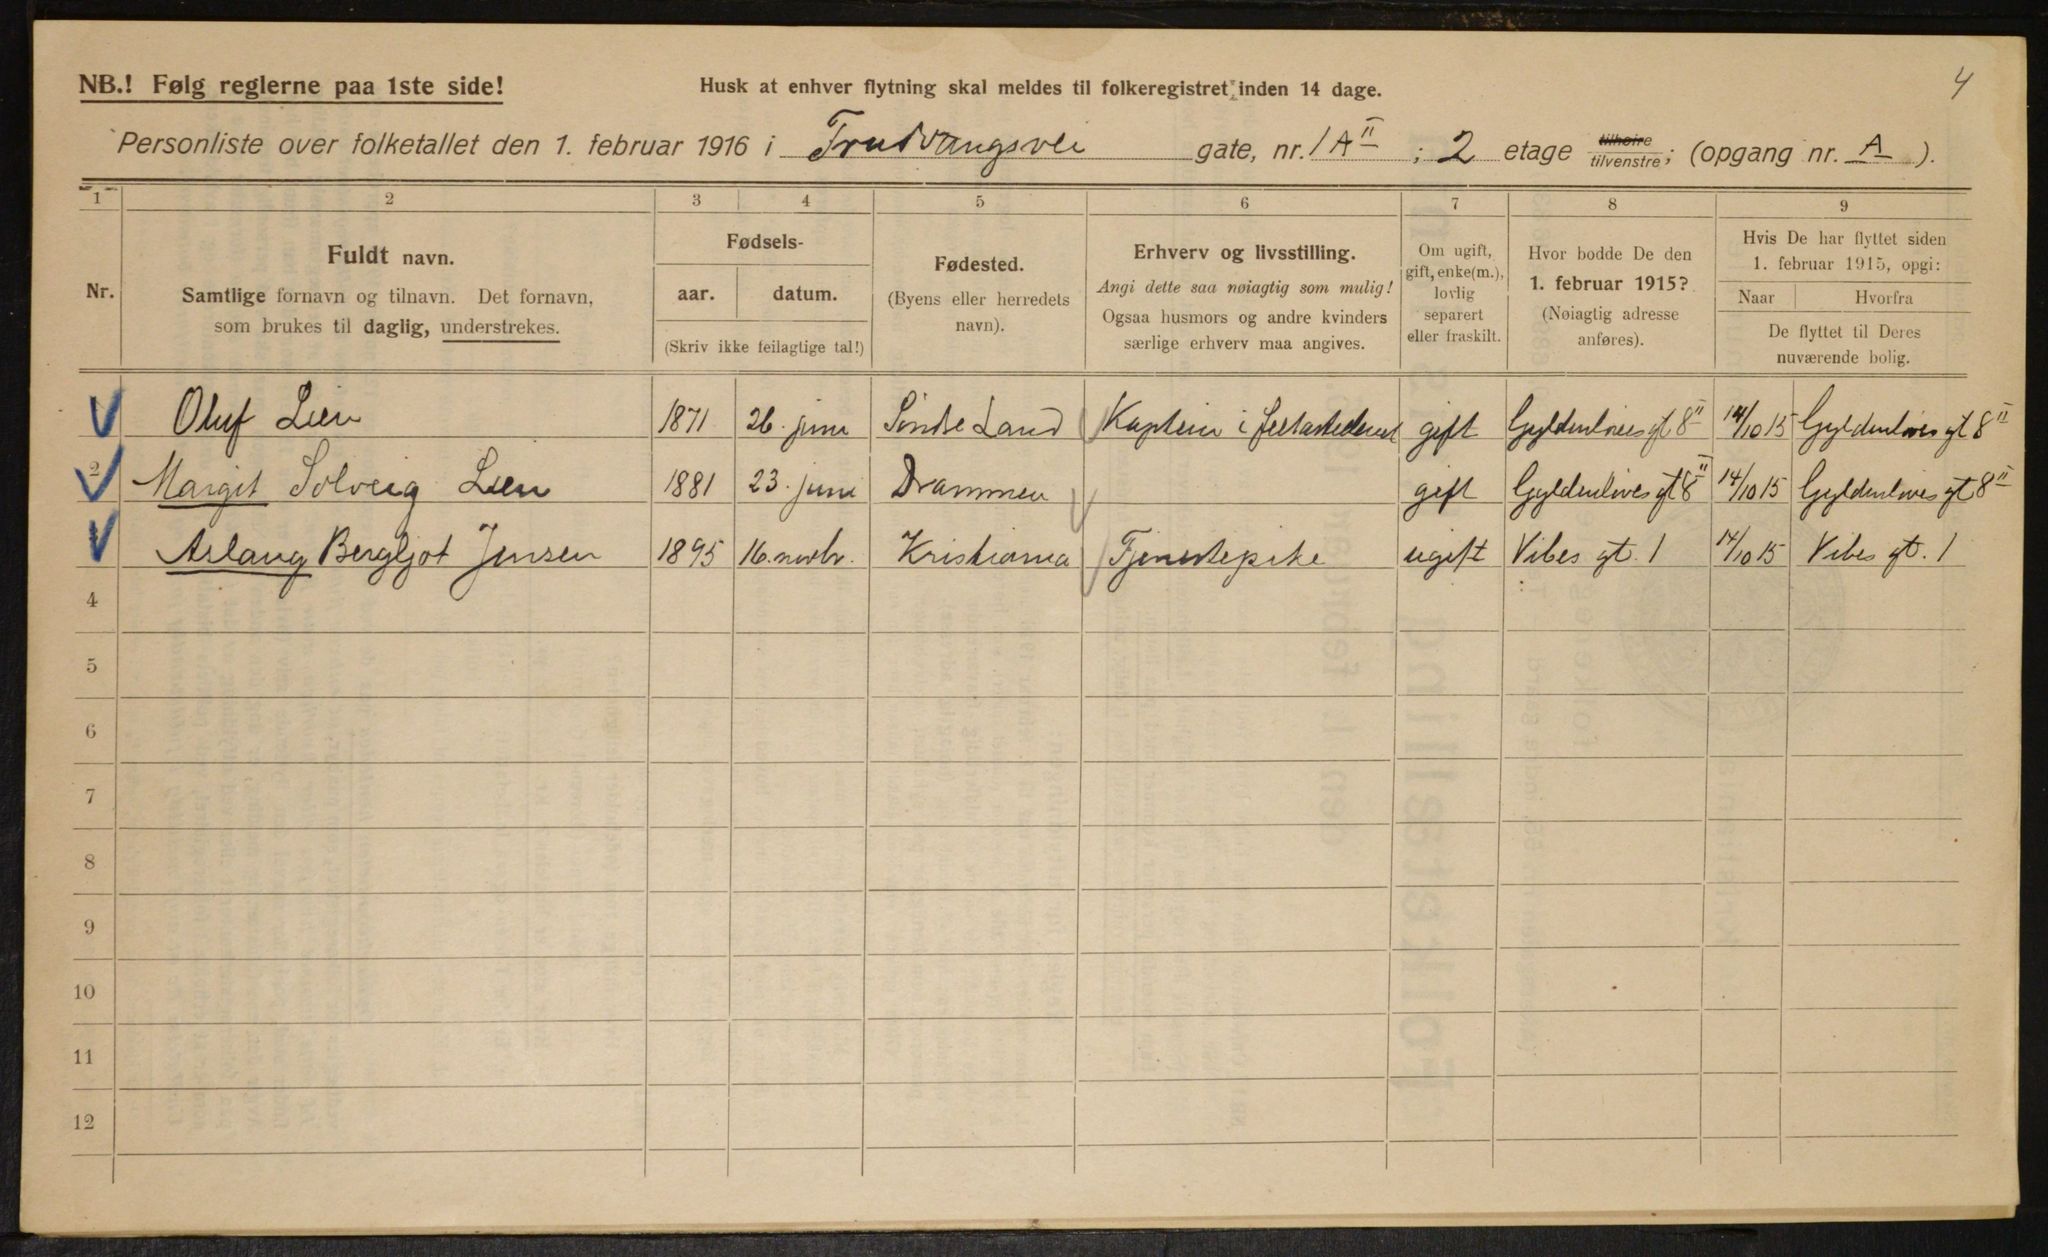 4
NB.! Følg reglerne paa 1ste side!
Husk at enhver flytning skal meldes til folkeregistret inden 14 dage.
Personliste over folketallet den 1. februar 1916 i Trudvangsvei gate, nr. 1A II ; 2 etage tilhøire tilvenstre; (opgang nr. A ).
1 2 3 4 5 6 7 8 9
Nr.
Fuldt navn.
Samtlige fornavn og tilnavn. Det fornavn,
som brukes til daglig, understrekes.
Fødsels-
aar. datum.
(Skriv ikke feilagtige tal!)
Fødested.
(Byens eller herredets
navn).
Erhverv og livsstilling.
Angi dette saa nøiagtig som mulig!
Ogsaa husmors og andre kvinders
særlige erhverv maa angives.
Om ugift,
gift, enke(m.),
lovlig
separert
eller fraskilt.
Hvor bodde De den
1. februar 1915?
(Nøiagtig adresse
anføres).
Hvis De har flyttet siden
1. februar 1915, opgi:
Naar Hvorfra
De flyttet til Deres
nuværende bolig.
Oluf Lien 1871 26. juni Søndre Land Kaptein i gift Gyldenløves gt 8 II 14/10 15 Gyldenløves gt 8 II
2 Margit Solveig Lien 1881 23. juni Drammen gift Gyldenløves gt 8 II 14/10 15 Gyldenløves gt 8 II
Aslaug Bergljot Jensen 1895 16. novbr. Kristiania Tjenestepike ugift Vibes gt. 1 14/10 15 Vibes gt. 1
4
5
6
7
8
9
10
11
12